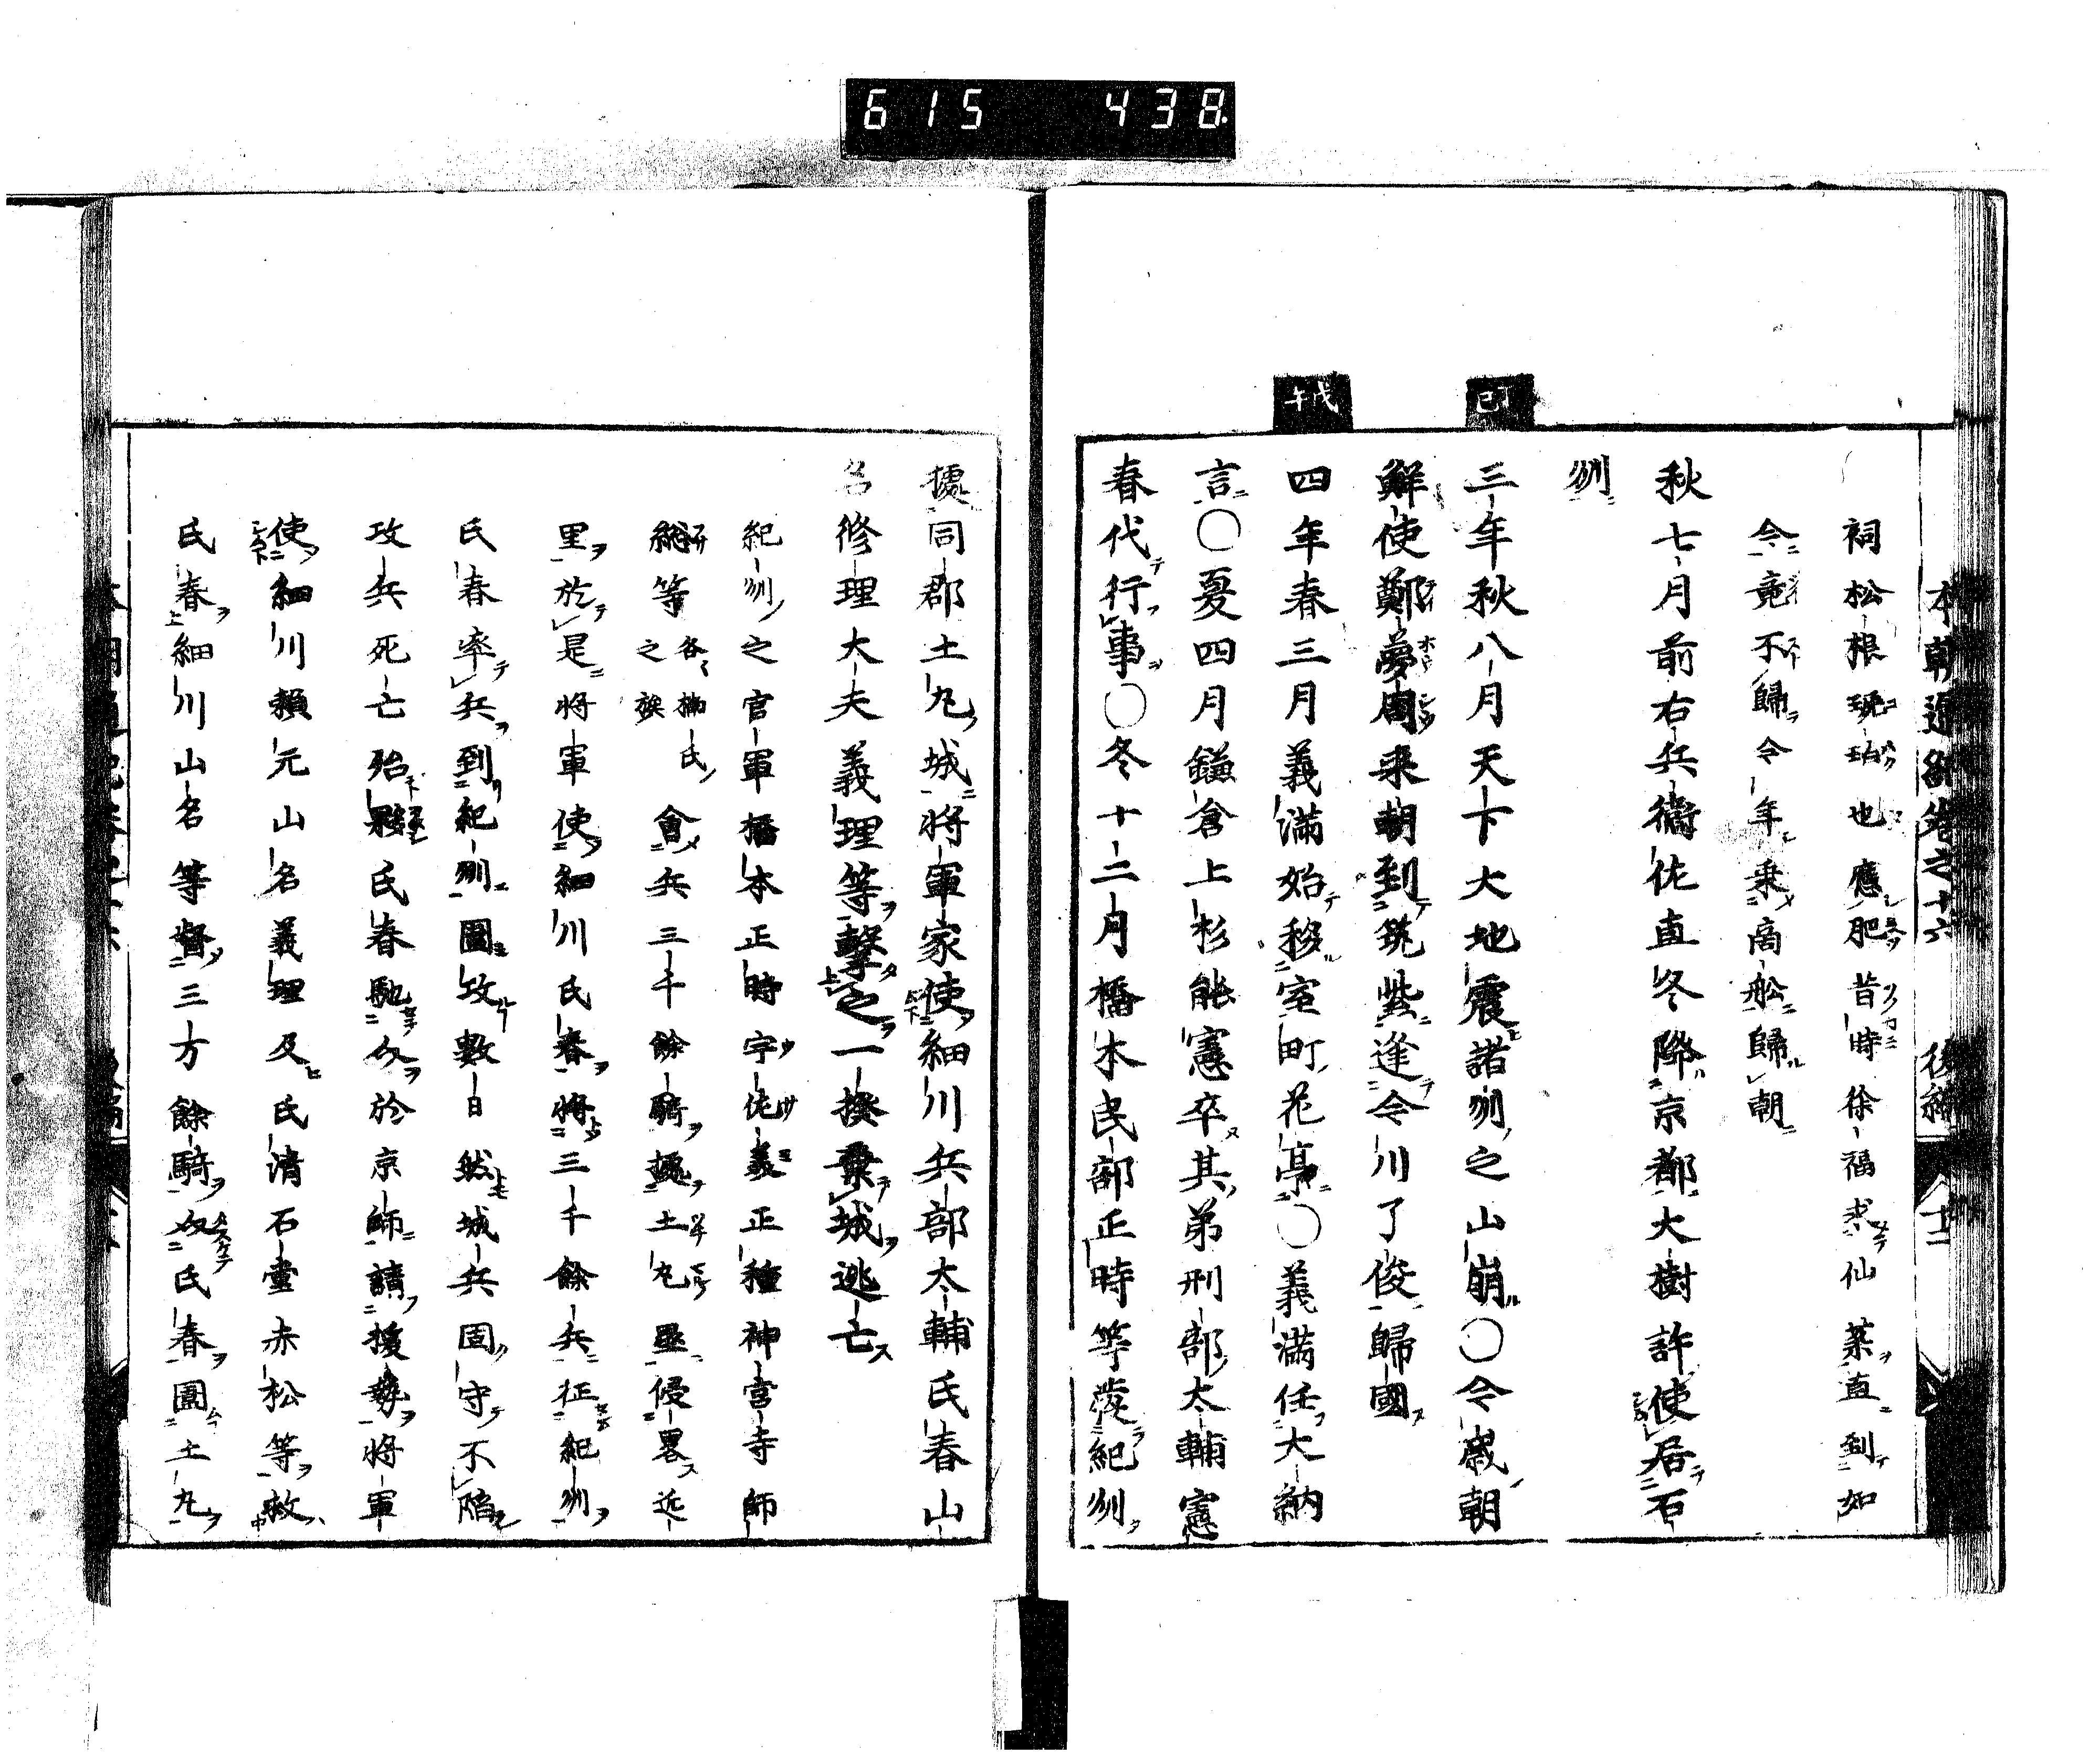 615 438
本朝通紀卷之十六 後編 十二
祠松根琥珀也應肥昔時徐福求仙薬直到如
今竟不歸今年乗商舩歸朝
秋七月前右兵衞佐直冬降京都大樹許使居石
刕
丁巳
三年秋八月天下大地震諸刕之山崩〇今歳朝
鮮使鄭夢周来朝到筑紫逢今川了俊歸國
戊午
四年春三月義滿始移室町花亭〇義滿任大納
言〇夏四月鎌倉上杉能憲卒其弟刑部太輔憲
春代行事〇冬十二月橋本民部正時等發紀刕
據同郡土丸城將軍家使細川兵部太輔氏春山
名修理大夫義理等擊之一揆棄城逃亡
紀刕之官軍橋本正時宇佐義正種神宮寺師
総等各楠氏之族會兵三千餘騎據土丸壘侵畧近
里於是將軍使細川氏春將三千餘兵征紀刕
氏春率兵到紀刕圍攻數日然城兵固守不陷
攻兵死亡殆夥氏春馳使於京師請援勢將軍
使細川頼元山名義理及氏清石堂赤松等救
氏春細川山名等督三万餘騎救氏春圍土丸